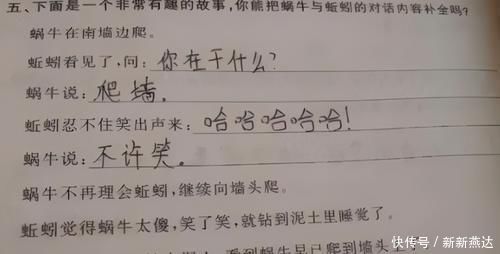 五、下面是一个非常有趣的故事,你能把蜗牛与蚯蚓的对话内容补全吗?
蜗牛在南墙边爬。
蚯蚓看见了,问:你在干什么?
蜗牛说:爬墙.
蚯蚓忍不住笑出声来:哈哈哈哈哈!
蜗牛说:不许笑.
蜗牛不再理会蚯蚓,继续向墙头爬。
蚯蚓觉得蜗牛太傻,笑了笑,就钻到泥土里睡觉了。
看到蜗牛早已爬到墙头上
快传号/新新燕达